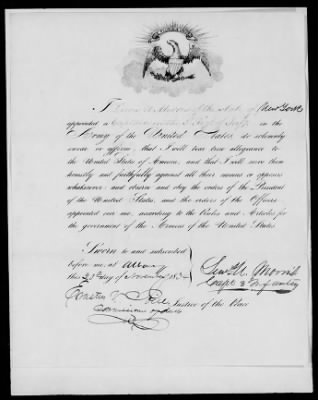 I Lewis N. Morris of the State of New York
appointed a Captain in the 3 Regt of Infy. in the
Army of the United States, do solemnly
swear or affirm, that I will bear true allegiance to
the United States of America, and that I will serve them
honestly and faithfully against all their enemies or opposers
whatsoever: and observe and obey the orders of the President
of the United States, and the orders of the Officers
appointed over me, according to the Rules and Articles for
the government of the Armies of the United States.
Sworn to and subscribed
before me, at Albany
this 23d day of
Lewis N. Morris
Capt 3d of Infantry
Justice of the Peace
Commissioner of Deeds